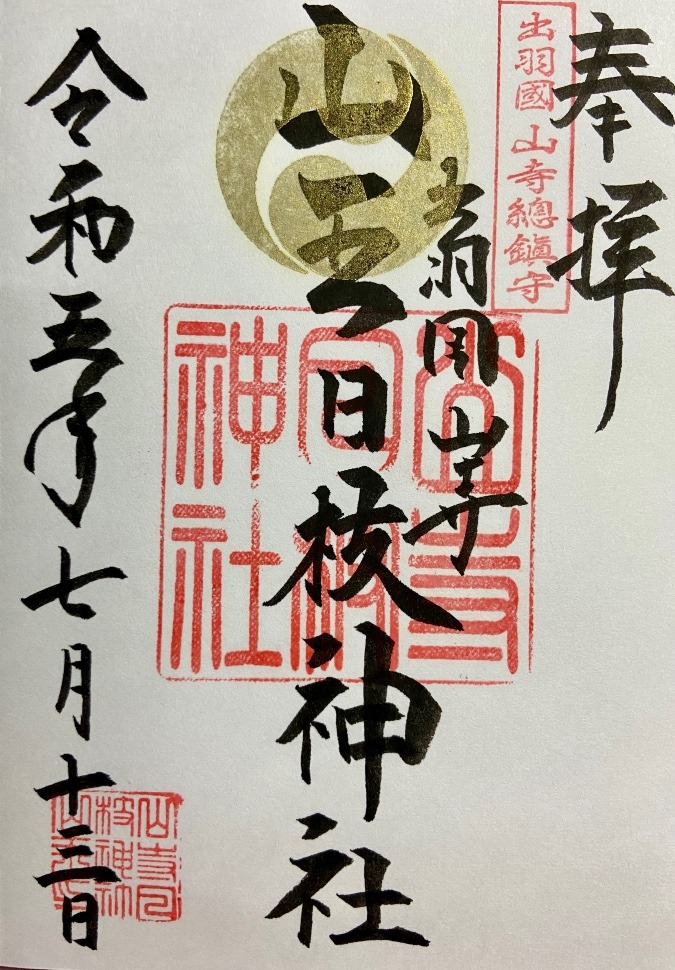 奉拝
出羽國 山寺總鎮守
出羽国 山寺
山王日枝神社
山寺
日枝
神社
令和五年七月十三日